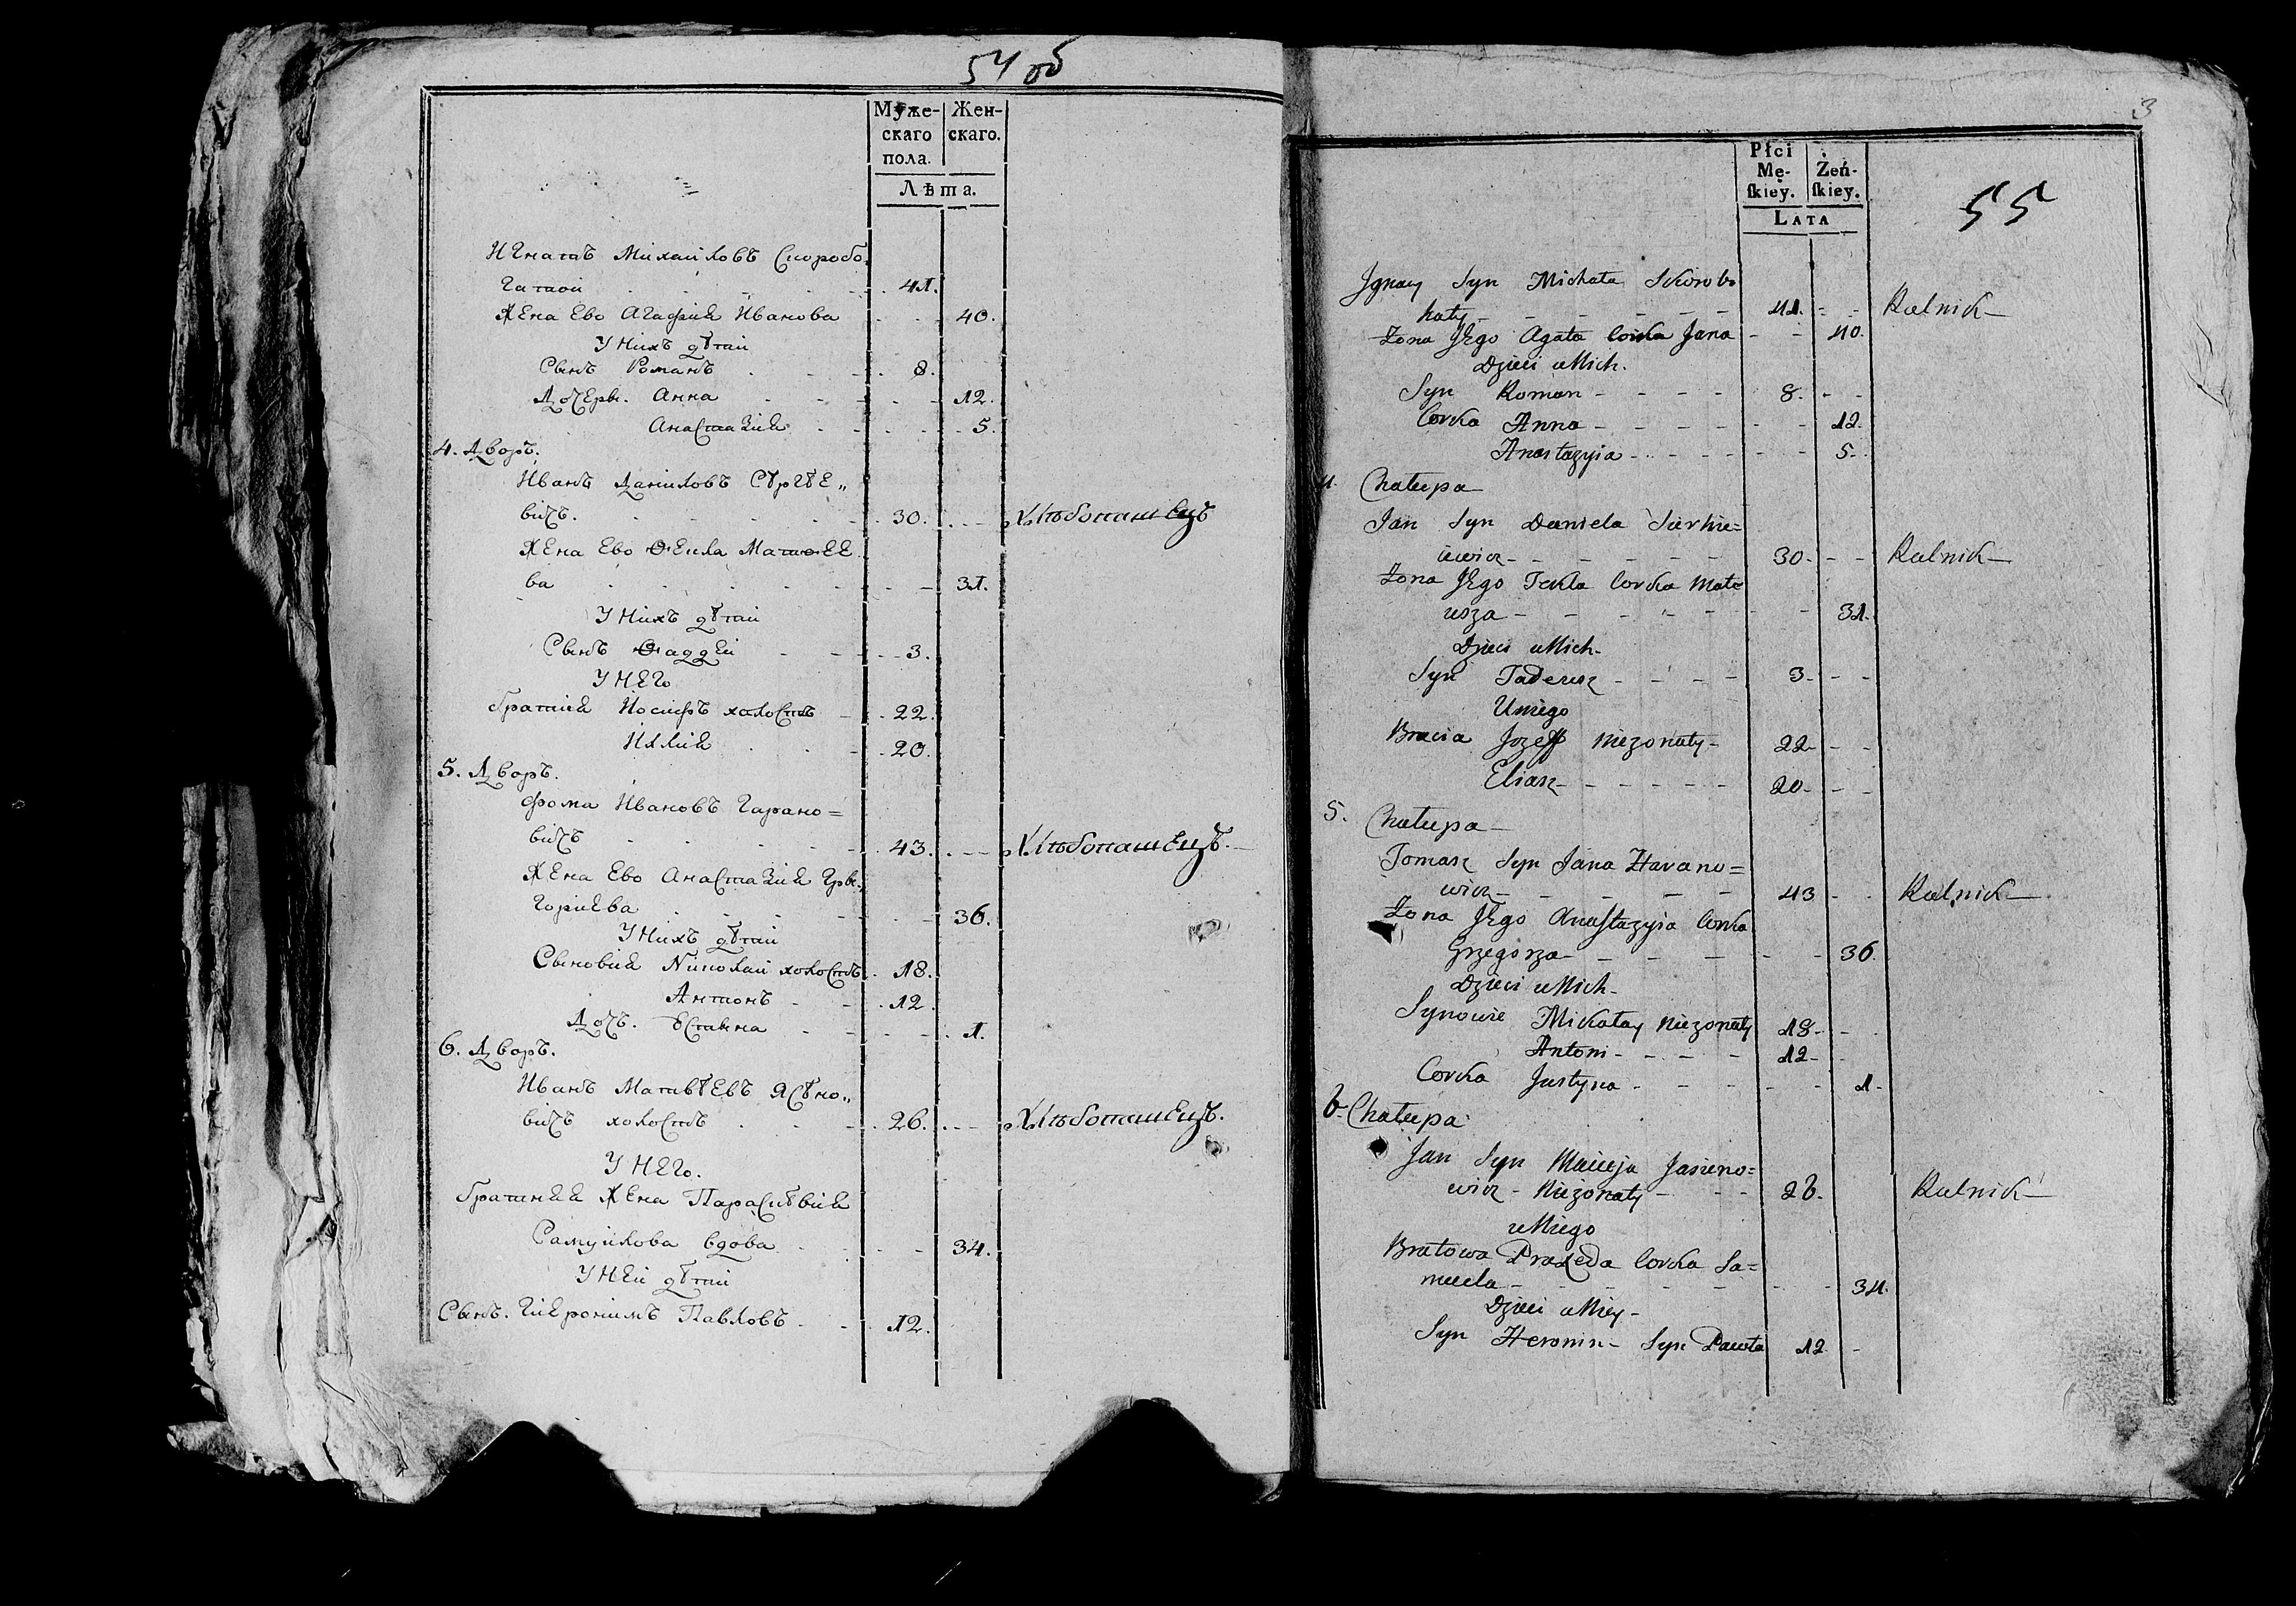 54 об
Муже- Жен-
скаго скаго.
пола.
Лѣта.
Игнатъ Михаиловъ Скоробо
гатои 41.
жена ево Агафия Иванова 40.
У нихъ дѣтаи
Сынъ Романъ 8.
дочерь. Анна 12.
Анастазия 5.
4. дворъ.
Иванъ Даниловъ Сѣргѣе„
вичъ. 30. Хлѣбопашецъ
жена ево Ѳекла Матѳее
ва 31.
У нихъ дѣтаи
Сынъ Ѳаддеи 3.
У него
братия Иосифъ холостъ 22.
Иллия 20.
5. дворъ.
Фома Ивановъ Гарано=
вичъ 43. Хлѣбопашецъ.
жена ево Анастазия Гры
гориева 36.
У нихъ дѣтаи
Сыновия Николаи холостъ 18.
Антонъ 12
дочъ. Естина 1.
6. дворъ.
Иванъ Матвѣевъ Ясѣно„
вичъ холостъ 26. Хлѣбопашецъ.
У него.
братиняя жена Параскѣвия
Самуилова вдова 34.
У неи дѣтаи
Сынъ. Гиеронимъ Павловъ 12.
3
Płci
Mę- Żeń-
skiey. skiey.
LATA
55
Jgnacy Syn Michała Skorobo
haty 41. Rolnik
Zona Jego Agata Corka Jana 40.
Dzieci u Nich.
Syn Roman 8.
Corka Anna 12.
Anastazyia 5.
4. Chałupa
Jan Syn Daniela Sierhie=
iewicz 30 Rolnik
Zona Jego Tekla Corka Mate
usza 31.
Dzieci u Nich
Syn Tadeusz 3
U niego
Bracia Jozeff Niezonaty 22
Eliasz 20
5. Chałupa
Tomasz Syn Jana Harano=
wicz 43 Rolnik
Zona Jego Anastazyia Corka
Grzegorza 36.
Dzieci u Nich
Synowie Mikołay Niezonaty 18
Antoni 12
Corka Justyna 1
6. Chałupa
Jan Syn Macieja Jasieno=
wicz Niezonaty 26. Rolnik
u Niego
Bratowa Praxeda Corka Sa=
muela 34.
Dzieci u Niey
Syn Heronim Syn Pawła 12